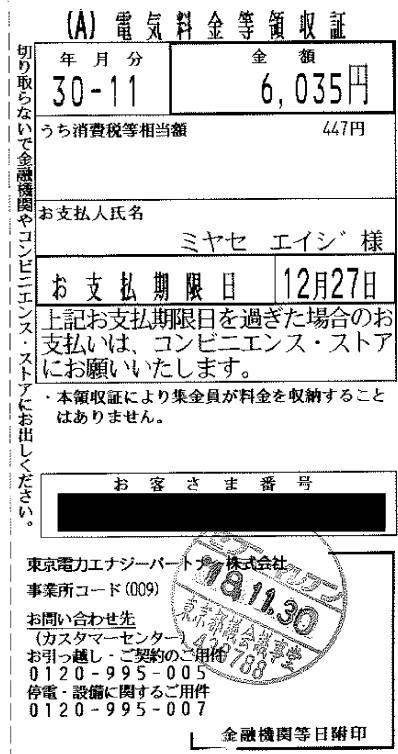 (A) 電気料金等領収証
切り取らないで金融機関やコンビニエンス・ストアにお出しください。
年月分
金額
30-11
6,035円
うち消費税等相当額
447円
お支払人氏名
ミヤセ エイジ 様
お支払期限日
12月27日
上記お支払期限日を過ぎた場合のお
支払いは、コンビニエンス・ストア
にお願いいたします。
・本領収証により集金員が料金を収納すること
はありません。
お客さま番号
東京電力エナジーパートナー株式会社
事業所コード(009)
お問い合わせ先
(カスタマーセンター)
お引っ越し・ご契約のご用件
0120-995-005
停電・設備に関するご用件
0120-995-007
セブン-イレブン
18.11.30
東京都議会議事堂
金融機関等日附印